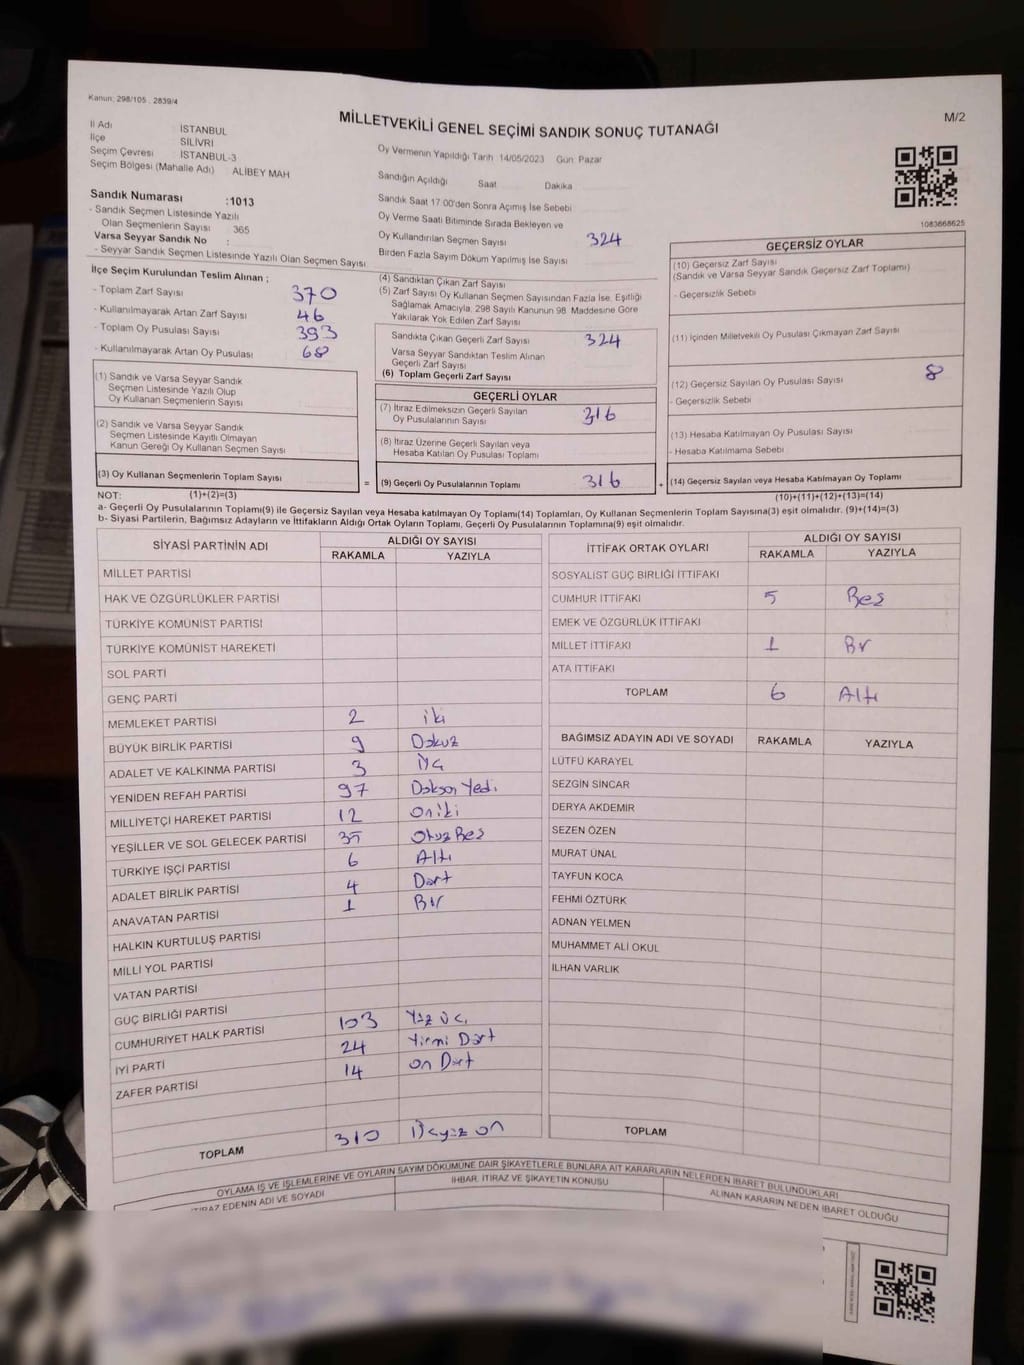 Kanun; 298/105 , 2839/4
M/2
MİLLETVEKİLİ GENEL SEÇİMİ SANDIK SONUÇ TUTANAĞI
İl Adı İSTANBUL
İlçe SİLİVRİ
Seçim Çevresi İSTANBUL-3
Seçim Bölgesi (Mahalle Adı) ALİBEY MAH
Sandık Numarası :1013
- Sandık Seçmen Listesinde Yazılı
Olan Seçmenlerin Sayısı 365
Varsa Seyyar Sandık No :
- Seyyar Sandık Seçmen Listesinde Yazılı Olan Seçmen Sayısı
İlçe Seçim Kurulundan Teslim Alınan ;
- Toplam Zarf Sayısı 370
- Kullanılmayarak Artan Zarf Sayısı 46
- Toplam Oy Pusulası Sayısı 393
- Kullanılmayarak Artan Oy Pusulası 68
(1) Sandık ve Varsa Seyyar Sandık
Seçmen Listesinde Yazılı Olup
Oy Kullanan Seçmenlerin Sayısı
(2) Sandık ve Varsa Seyyar Sandık
Seçmen Listesinde Kayıtlı Olmayan
Kanun Gereği Oy Kullanan Seçmen Sayısı
(3) Oy Kullanan Seçmenlerin Toplam Sayısı =
Oy Vermenin Yapıldığı Tarih 14/05/2023 Gün Pazar
Sandığın Açıldığı Saat Dakika
Sandık Saat 17.00'den Sonra Açımış İse Sebebi
Oy Verme Saati Bitiminde Sırada Bekleyen ve
Oy Kullandırılan Seçmen Sayısı 324
Birden Fazla Sayım Döküm Yapılmış İse Sayısı
(4) Sandıktan Çıkan Zarf Sayısı
(5) Zarf Sayısı Oy Kullanan Seçmen Sayısından Fazla İse, Eşitliği
Sağlamak Amacıyla, 298 Sayılı Kanunun 98. Maddesine Göre
Yakılarak Yok Edilen Zarf Sayısı
Sandıkta Çıkan Geçerli Zarf Sayısı 324
Varsa Seyyar Sandıktan Teslim Alınan
Geçerli Zarf Sayısı
(6) Toplam Geçerli Zarf Sayısı
GEÇERLİ OYLAR
(7) İtiraz Edilmeksizin Geçerli Sayılan
Oy Pusulalarının Sayısı 316
(8) İtiraz Üzerine Geçerli Sayılan veya
Hesaba Katılan Oy Pusulası Toplamı
(9) Geçerli Oy Pusulalarının Toplamı 316 +
1083668625
GEÇERSİZ OYLAR
(10) Geçersiz Zarf Sayısı
(Sandık ve Varsa Seyyar Sandık Geçersiz Zarf Toplamı)
- Geçersizlik Sebebi
(11) İçinden Milletvekili Oy Pusulası Çıkmayan Zarf Sayısı
(12) Geçersiz Sayılan Oy Pusulası Sayısı 8
- Geçersizlik Sebebi
(13) Hesaba Katılmayan Oy Pusulası Sayısı
- Hesaba Katılmama Sebebi
(14) Geçersiz Sayılan veya Hesaba Katılmayan Oy Toplamı
NOT: (1)+(2)=(3) (10)+(11)+(12)+(13)=(14)
a- Geçerli Oy Pusulalarının Toplamı(9) ile Geçersiz Sayılan veya Hesaba katılmayan Oy Toplamı(14) Toplamları, Oy Kullanan Seçmenlerin Toplam Sayısına(3) eşit olmalıdır. (9)+(14)=(3)
b- Siyasi Partilerin, Bağımsız Adayların ve İttifakların Aldığı Ortak Oyların Toplamı, Geçerli Oy Pusulalarının Toplamına(9) eşit olmalıdır.
SİYASİ PARTİNİN ADI ALDIĞI OY SAYISI
RAKAMLA YAZIYLA
MİLLET PARTİSİ
HAK VE ÖZGÜRLÜKLER PARTİSİ
TÜRKİYE KOMÜNİST PARTİSİ
TÜRKİYE KOMÜNİST HAREKETİ
SOL PARTİ
GENÇ PARTİ
MEMLEKET PARTİSİ 2 iki
BÜYÜK BİRLİK PARTİSİ 9 Dokuz
ADALET VE KALKINMA PARTİSİ 3 Üç
YENİDEN REFAH PARTİSİ 97 Doksan Yedi
MİLLİYETÇİ HAREKET PARTİSİ 12 Oniki
YEŞİLLER VE SOL GELECEK PARTİSİ 35 Otuz Beş
TÜRKİYE İŞÇİ PARTİSİ 6 Altı
ADALET BİRLİK PARTİSİ 4 Dört
ANAVATAN PARTİSİ 1 Bir
HALKIN KURTULUŞ PARTİSİ
MİLLİ YOL PARTİSİ
VATAN PARTİSİ
GÜÇ BİRLİĞİ PARTİSİ
CUMHURİYET HALK PARTİSİ 103 Yüz üç
İYİ PARTİ 24 Yirmi Dört
ZAFER PARTİSİ 14 on Dört
TOPLAM 310 Üçyüz on
İTTİFAK ORTAK OYLARI ALDIĞI OY SAYISI
RAKAMLA YAZIYLA
SOSYALİST GÜÇ BİRLİĞİ İTTİFAKI
CUMHUR İTTİFAKI 5 Beş
EMEK VE ÖZGÜRLÜK İTTİFAKI
MİLLET İTTİFAKI 1 Bir
ATA İTTİFAKI
TOPLAM 6 Altı
BAĞIMSIZ ADAYIN ADI VE SOYADI RAKAMLA YAZIYLA
LÜTFÜ KARAYEL
SEZGİN SİNCAR
DERYA AKDEMİR
SEZEN ÖZEN
MURAT ÜNAL
TAYFUN KOCA
FEHMİ ÖZTÜRK
ADNAN YELMEN
MUHAMMET ALİ OKUL
İLHAN VARLIK
TOPLAM
OYLAMA İŞ VE İŞLEMLERİNE VE OYLARIN SAYIM DÖKÜMÜNE DAİR ŞİKAYETLERLE BUNLARA AİT KARARLARIN NELERDEN İBARET BULUNDUKLARI
İTİRAZ EDENİN ADI VE SOYADI İHBAR, İTİRAZ VE ŞİKAYETİN KONUSU ALINAN KARARIN NEDEN İBARET OLDUĞU